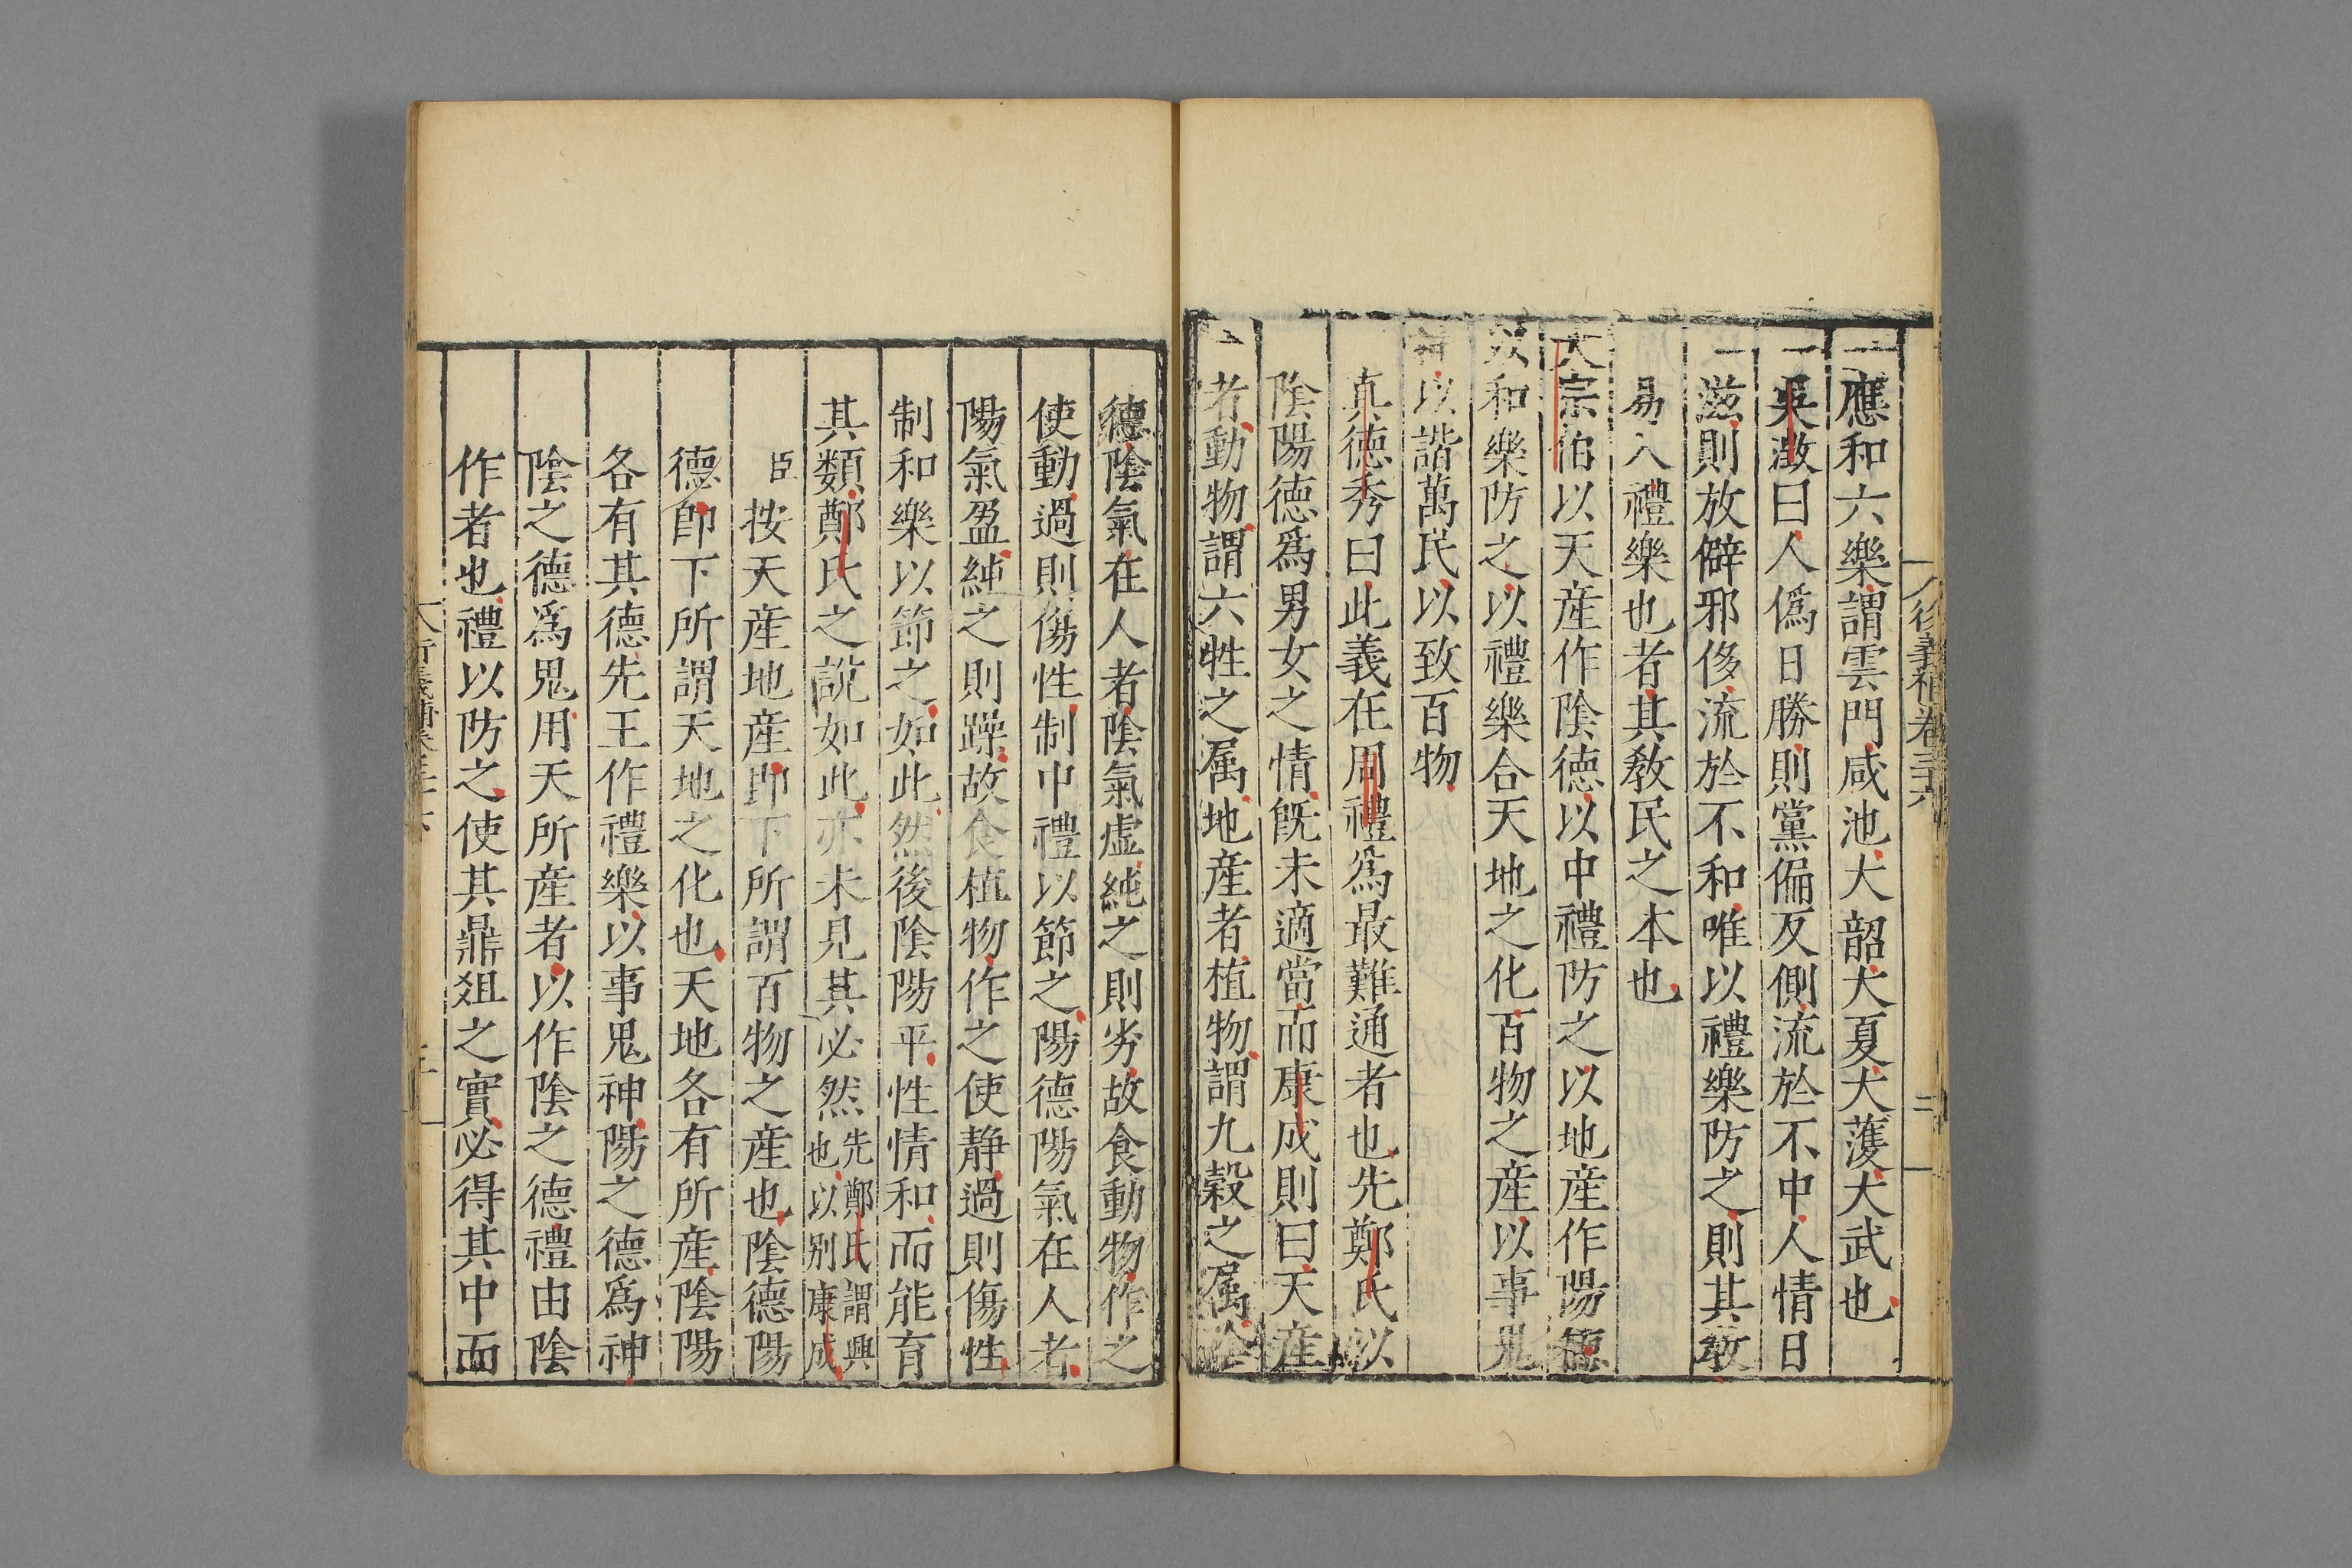 應和六樂謂雲門咸池大韶大夏大濩大武也
吳澂曰人僞日勝則黨偏反側流於不中人情日
滋則放僻邪侈流於不和唯以禮樂防之則其敎
易入禮樂也者其敎民之本也
大宗伯以天産作陰德以中禮防之以地産作陽德
以和樂防之以禮樂合天地之化百物之産以事鬼
神以諧萬民以致百物
真德秀曰此義在周禮爲最難通者也先鄭氏以
陰陽德爲男女之情旣未適當而康成則曰天産
者動物謂六牲之属地産者植物謂九穀之属陰
德陰氣在人者陰氣虛純之則劣故食動物作之
使動過則傷性制中禮以節之陽德陽氣在人者
陽氣盈純之則躁故食植物作之使静過則傷性
制和樂以節之如此然後陰陽平性情和而能育
其類鄭氏之說如此亦未見其必然先鄭氏謂興也以别康成
臣按天産地産即下所謂百物之産也陰德陽
德卽下所謂天地之化也天地各有所産陰陽
各有其德先王作禮樂以事鬼神陽之德爲神
陰之德爲鬼用天所産者以作陰之德禮由陰
作者也禮以防之使其鼎俎之實必得其中而